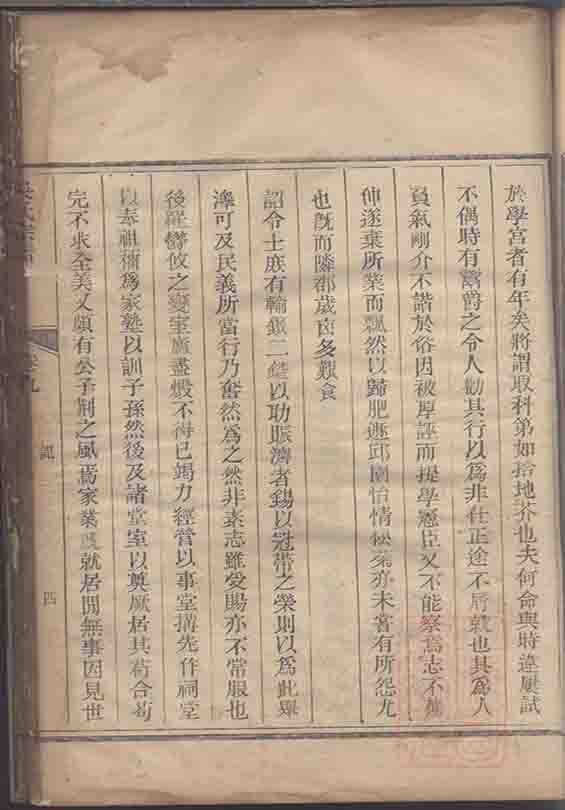 於學宮者有年矣將謂取科第如拾地芥也夫何命與時違屢試
不偶時有鬻爵之令人勸其行以為非仕正途不屑就也其為人
負氣剛介不諧於俗因被厚誣而提學憲臣又不能察焉志不獲
伸遂棄所業而飄然以歸肥遯邱園怡情松菊亦未嘗有所怨尤
也既而隣郡歲凶多艱食
詔令士庶有輸銀二鎰以功賑濟者錫以冠帶之榮則以為此舉
澤可及民義所當行乃奮然為之然非素志雖受賜亦不常服也
後罹鬱攸之變室廬盡燬不得已竭力經營以事堂搆先作祠堂
以奉祖禰為家塾以訓子孫然後及諸堂室以奠厥居其苟合茍
完不求全美又頗有公子荆之風焉家業既就居閒無事因見世
氏宗
卷九
記
四